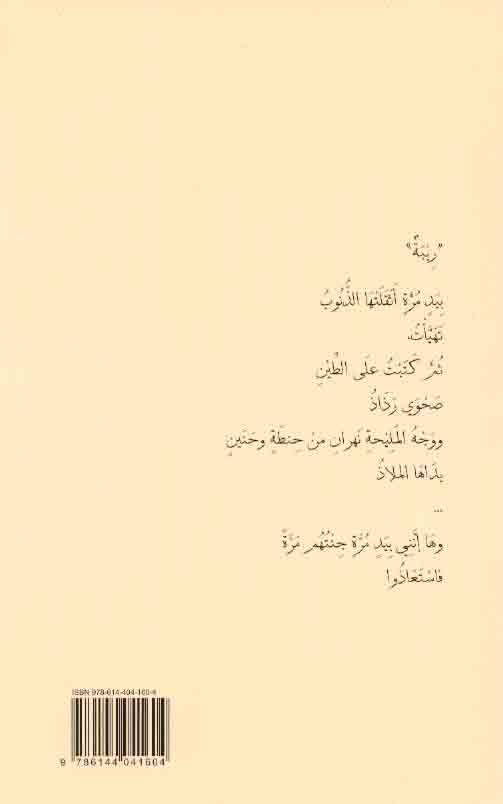 "رِيْبَةٌ"
بِيَدٍ مُرَّةٍ أَثقَلَتْهَا الذُّنُوبُ
تَهَيَّأْتُ،
ثُمَّ كَتَبْتُ عَلَى الطِّيْنِ
صَحْوِي رَذَاذُ
ووَجْهُ المَلِيْحةِ نَهرانِ مِنْ حِنطَةٍ وحَنَينٍ
يدَاهَا الملاذُ
...
وهَا إنَّنِي بِيَدٍ مُرَّةٍ جِئتُهُم مَرَّةً
فاسْتَعَاذُوا
ISBN 978-614-404-160-4
9 786144 041604